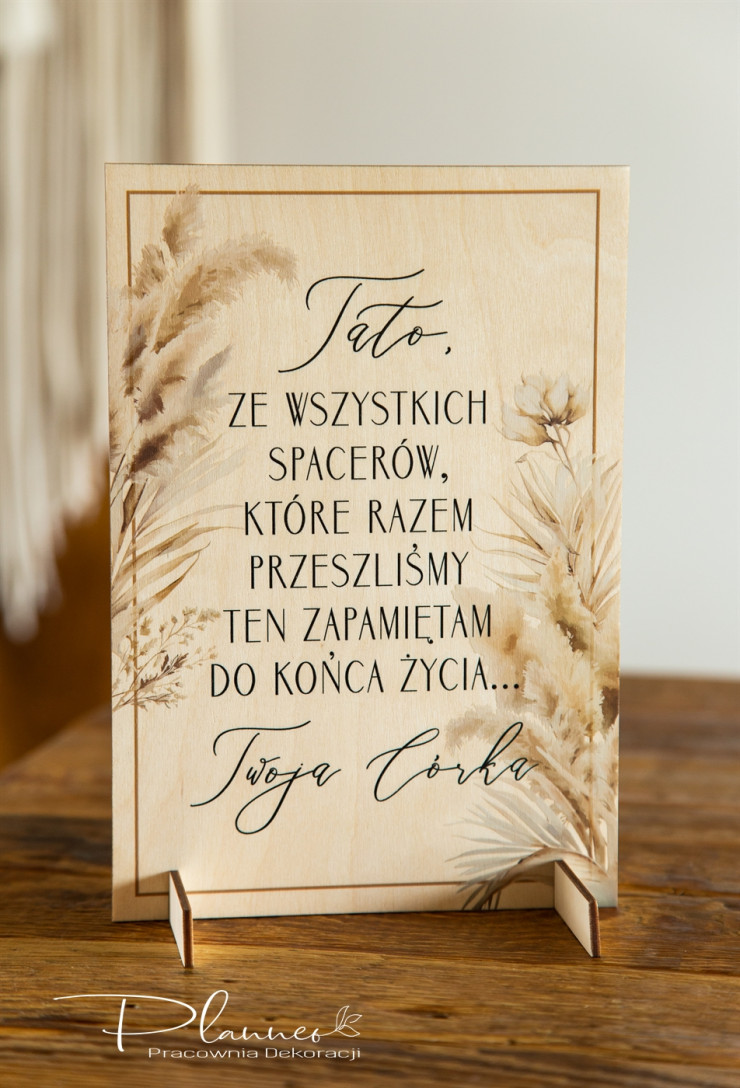 Tato,
ZE WSZYSTKICH
SPACERÓW,
KTÓRE RAZEM
PRZESZLIŚMY
TEN ZAPAMIĘTAM
DO KOŃCA ŻYCIA...
Twoja Córka
Planneo
Pracownia Dekoracji